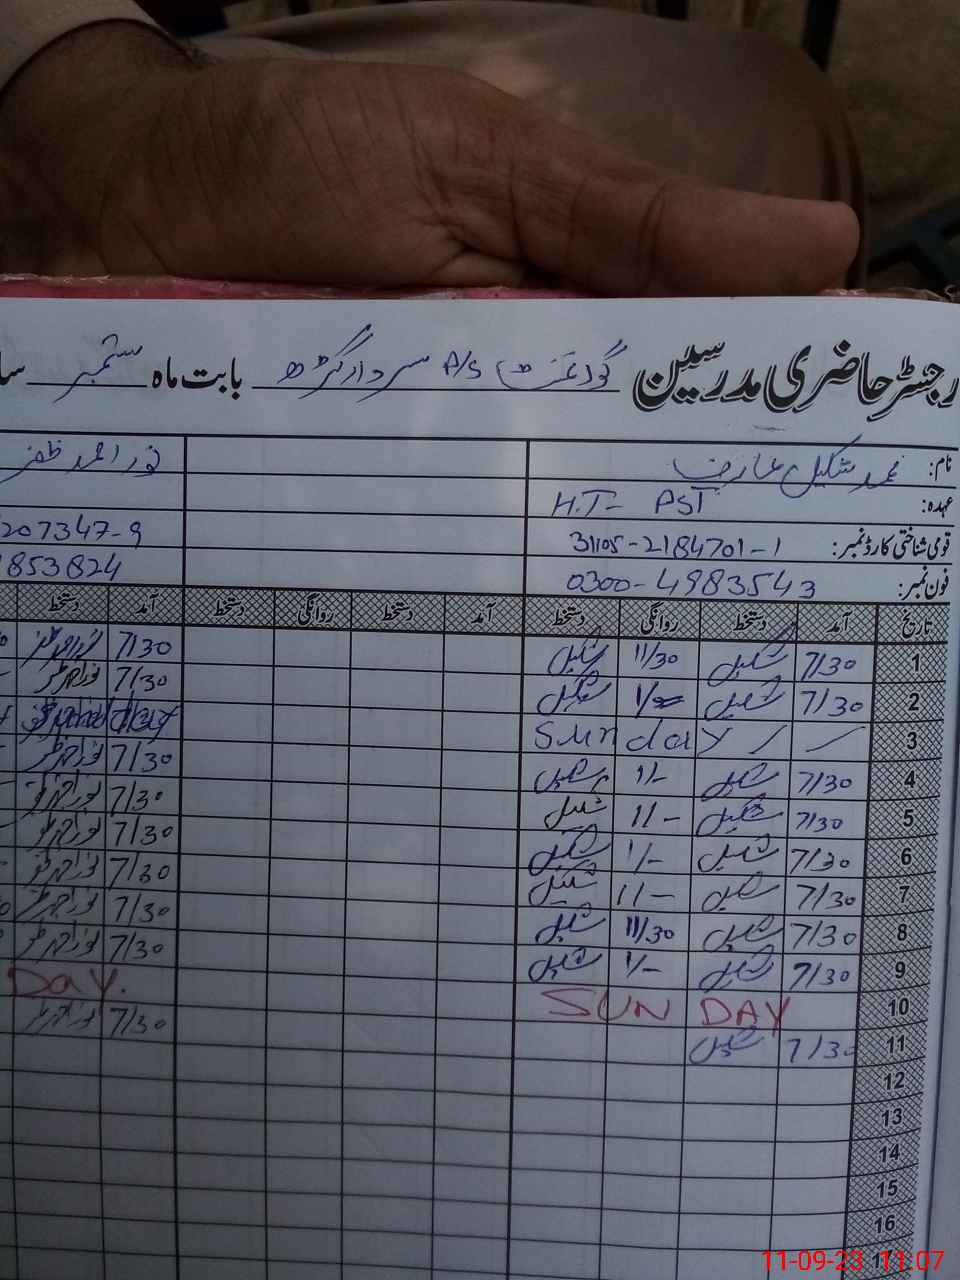 رجسٹر حاضری مدرسین گورنمنٹ P/S سردار گڑھ بابت ماہ ستمبر
نام: محمد شکیل عارف نور احمد ظفر
عہدہ: H.T- PST
قومی شناختی کارڈ نمبر: 31105-2184701-1 207347-9
فون نمبر: 0300-4983543 1853824
تاریخ آمد دستخط روانگی دستخط آمد دستخط روانگی دستخط آمد دستخط
1 7/30 شکیل 11/30 شکیل 7/30 نور احمد ظفر
2 7/30 شکیل 1/ شکیل 7/30 نور احمد ظفر
3 Sunday
4 7/30 شکیل 1/- شکیل 7/30 نور احمد ظفر
5 7/30 شکیل 1/- شکیل 7/30 نور احمد ظفر
6 7/30 شکیل 1/- شکیل 7/30 نور احمد ظفر
7 7/30 شکیل 1/- شکیل 7/30 نور احمد ظفر
8 7/30 شکیل 11/30 شکیل 7/30 نور احمد ظفر
9 7/30 شکیل 1/- شکیل 7/30 نور احمد ظفر
10 SUN DAY Day.
11 7/30 شکیل 7/30 نور احمد ظفر
12
13
14
15
16
11-09-23 11:07